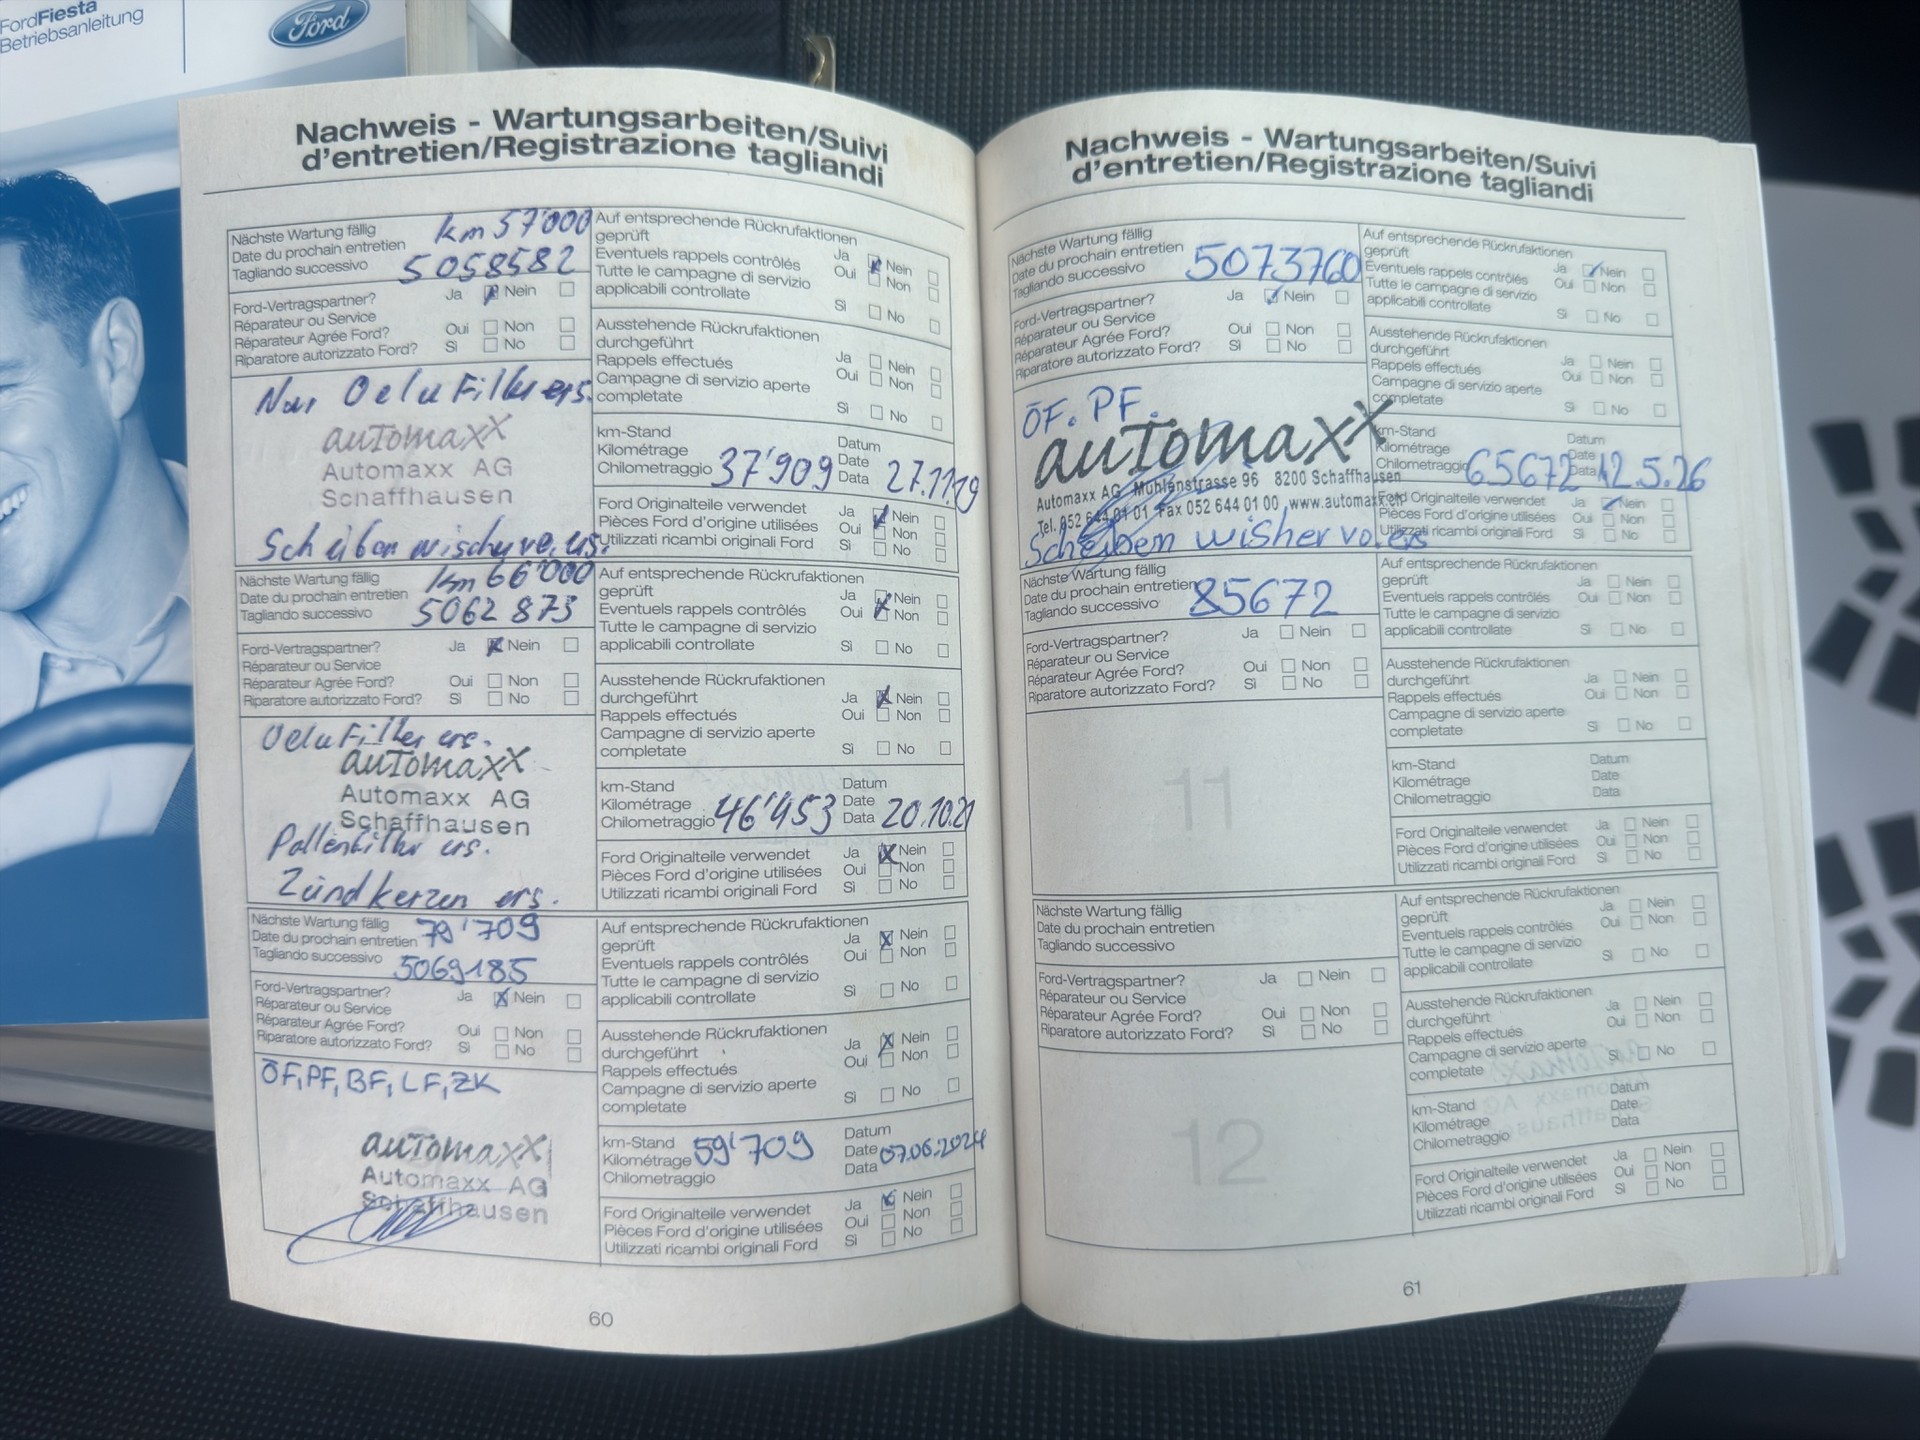 FordFiesta
Betriebsanleitung
Ford
Nachweis - Wartungsarbeiten/Suivi
d'entretien/Registrazione tagliandi
Nächste Wartung fällig km 57'000
Date du prochain entretien
Tagliando successivo 5058582
Ford-Vertragspartner? Ja Nein
Réparateur ou Service
Réparateur Agrée Ford? Oui Non
Riparatore autorizzato Ford? Sì No
Nur Oel u Filter ers.
automaxx
Automaxx AG
Schaffhausen
Scheibenwischer vo. ers.
Auf entsprechende Rückrufaktionen
geprüft Ja Nein
Eventuels rappels contrôlés Oui Non
Tutte le campagne di servizio
applicabili controllate Sì No
Ausstehende Rückrufaktionen
durchgeführt Ja Nein
Rappels effectués Oui Non
Campagne di servizio aperte
completate Sì No
km-Stand Datum
Kilométrage Date
Chilometraggio 37'909 Data 27.11.19
Ford Originalteile verwendet Ja Nein
Pièces Ford d'origine utilisées Oui Non
Utilizzati ricambi originali Ford Sì No
Nächste Wartung fällig km 66'000
Date du prochain entretien
Tagliando successivo 5062873
Ford-Vertragspartner? Ja Nein
Réparateur ou Service
Réparateur Agrée Ford? Oui Non
Riparatore autorizzato Ford? Sì No
Oel u Filter ers.
automaxx
Automaxx AG
Schaffhausen
Pollenfilter ers.
Zündkerzen ers.
Auf entsprechende Rückrufaktionen
geprüft Ja Nein
Eventuels rappels contrôlés Oui Non
Tutte le campagne di servizio
applicabili controllate Sì No
Ausstehende Rückrufaktionen
durchgeführt Ja Nein
Rappels effectués Oui Non
Campagne di servizio aperte
completate Sì No
km-Stand Datum
Kilométrage Date
Chilometraggio 46'453 Data 20.10.21
Ford Originalteile verwendet Ja Nein
Pièces Ford d'origine utilisées Oui Non
Utilizzati ricambi originali Ford Sì No
Nächste Wartung fällig 79'709
Date du prochain entretien
Tagliando successivo 5069185
Ford-Vertragspartner? Ja Nein
Réparateur ou Service
Réparateur Agrée Ford? Oui Non
Riparatore autorizzato Ford? Sì No
ÖF, PF, BF, LF, ZK
automaxx
Automaxx AG
Schaffhausen
Auf entsprechende Rückrufaktionen
geprüft Ja Nein
Eventuels rappels contrôlés Oui Non
Tutte le campagne di servizio
applicabili controllate Sì No
Ausstehende Rückrufaktionen
durchgeführt Ja Nein
Rappels effectués Oui Non
Campagne di servizio aperte
completate Sì No
km-Stand Datum
Kilométrage 59'709 Date 07.06.2024
Chilometraggio Data
Ford Originalteile verwendet Ja Nein
Pièces Ford d'origine utilisées Oui Non
Utilizzati ricambi originali Ford Sì No
60
Nachweis - Wartungsarbeiten/Suivi
d'entretien/Registrazione tagliandi
Nächste Wartung fällig
Date du prochain entretien 5073760
Tagliando successivo
Ford-Vertragspartner? Ja Nein
Réparateur ou Service
Réparateur Agrée Ford? Oui Non
Riparatore autorizzato Ford? Sì No
ÖF. PF.
automaxx
Automaxx AG Mühlenstrasse 96 8200 Schaffhausen
Tel. 052 644 01 01 Fax 052 644 01 00, www.automaxx.ch
Scheiben wisher vo. ers
Auf entsprechende Rückrufaktionen
geprüft Ja Nein
Eventuels rappels contrôlés Oui Non
Tutte le campagne di servizio
applicabili controllate Sì No
Ausstehende Rückrufaktionen
durchgeführt Ja Nein
Rappels effectués Oui Non
Campagne di servizio aperte
completate Sì No
km-Stand Datum
Kilométrage Date
Chilometraggio 65672 Data 12.5.26
Ford Originalteile verwendet Ja Nein
Pièces Ford d'origine utilisées Oui Non
Utilizzati ricambi originali Ford Sì No
Nächste Wartung fällig
Date du prochain entretien 85672
Tagliando successivo
Ford-Vertragspartner? Ja Nein
Réparateur ou Service
Réparateur Agrée Ford? Oui Non
Riparatore autorizzato Ford? Sì No
11
Auf entsprechende Rückrufaktionen
geprüft Ja Nein
Eventuels rappels contrôlés Oui Non
Tutte le campagne di servizio
applicabili controllate Sì No
Ausstehende Rückrufaktionen
durchgeführt Ja Nein
Rappels effectués Oui Non
Campagne di servizio aperte
completate Sì No
km-Stand Datum
Kilométrage Date
Chilometraggio Data
Ford Originalteile verwendet Ja Nein
Pièces Ford d'origine utilisées Oui Non
Utilizzati ricambi originali Ford Sì No
Nächste Wartung fällig
Date du prochain entretien
Tagliando successivo
Ford-Vertragspartner? Ja Nein
Réparateur ou Service
Réparateur Agrée Ford? Oui Non
Riparatore autorizzato Ford? Sì No
12
Auf entsprechende Rückrufaktionen
geprüft Ja Nein
Eventuels rappels contrôlés Oui Non
Tutte le campagne di servizio
applicabili controllate Sì No
Ausstehende Rückrufaktionen
durchgeführt Ja Nein
Rappels effectués Oui Non
Campagne di servizio aperte
completate Sì No
km-Stand Datum
Kilométrage Date
Chilometraggio Data
Ford Originalteile verwendet Ja Nein
Pièces Ford d'origine utilisées Oui Non
Utilizzati ricambi originali Ford Sì No
61